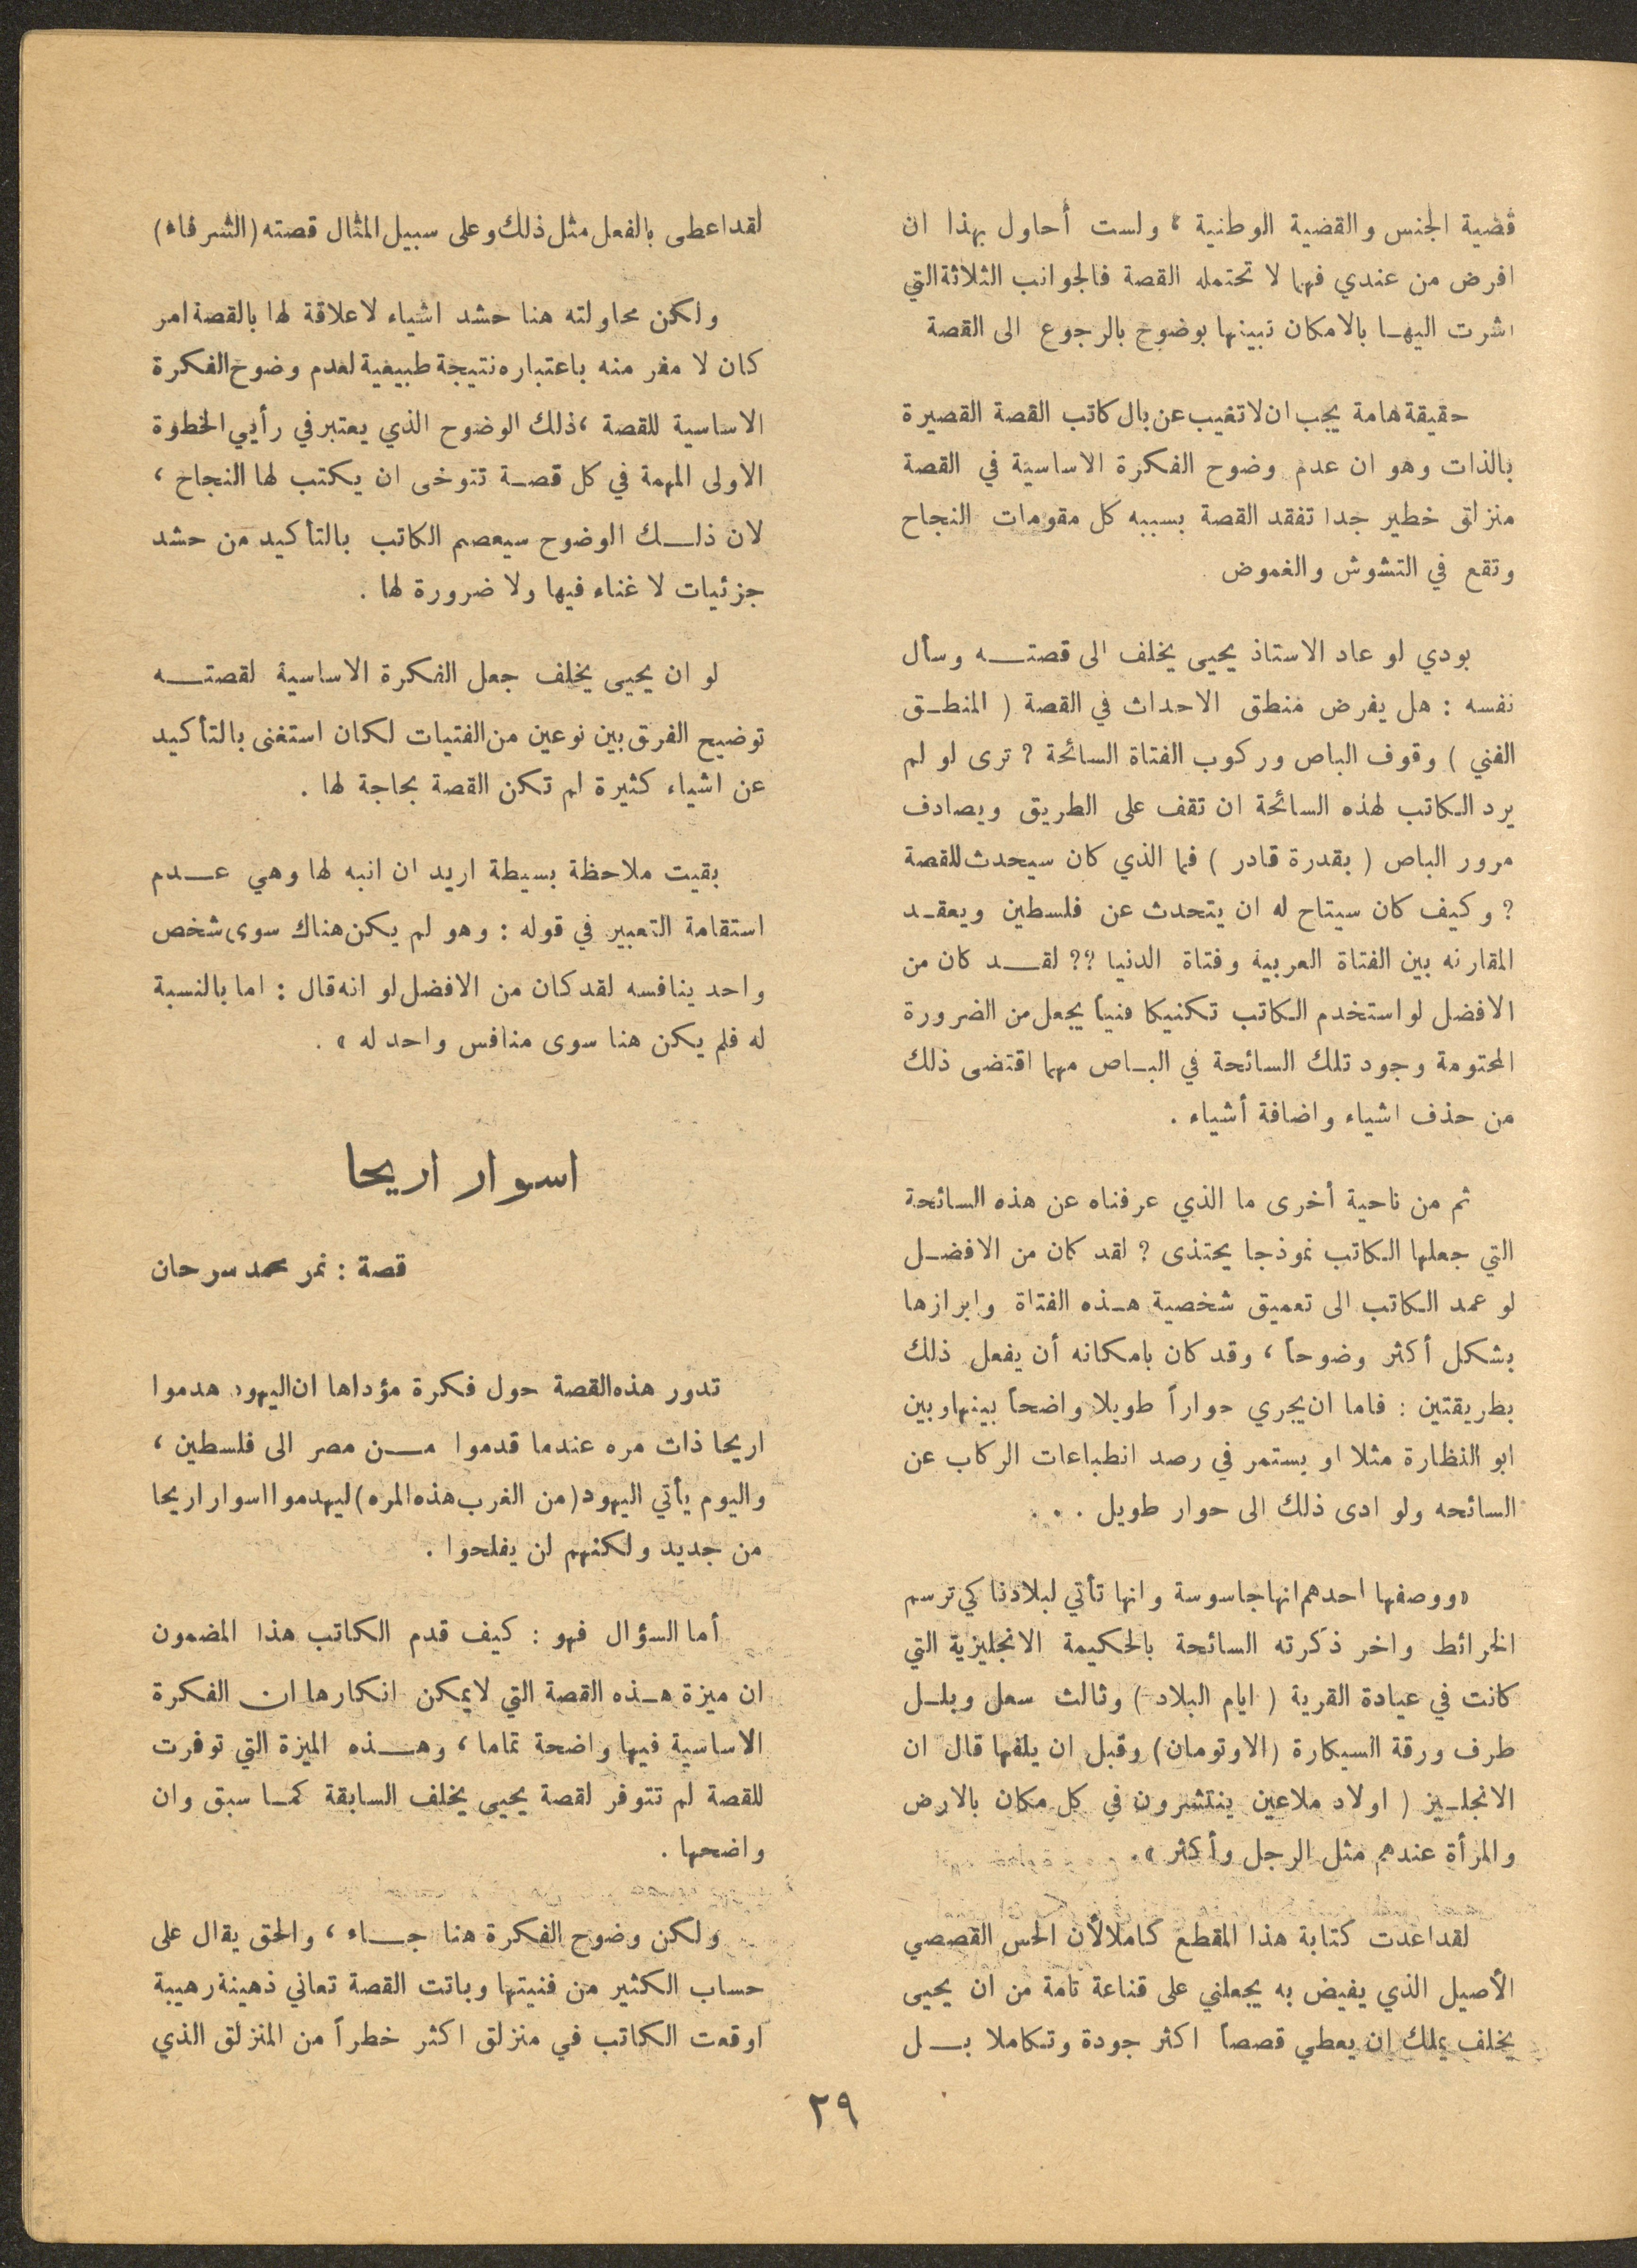 قضية الجنس والقضية الوطنية ، ولست أحاول بهذا ان
افرض من عندي فهما لا تحتمله القصة فالجوانب الثلاثة التي
اشرت اليها بالامكان تبينها بوضوح بالرجوع الى القصة
حقيقة هامة يجب ان لا تغيب عن بال كاتب القصة القصيرة
بالذات وهو ان عدم وضوح الفكرة الاساسية في القصة
منزلق خطير جدا تفقد القصة بسببه كل مقومات النجاح
وتقع في التشوش والغموض .
بودي لو عاد الاستاذ يحيى يخلف الى قصته وسأل
نفسه : هل يفرض منطق الاحداث في القصة ( المنطق
الفني ) وقوف الباص وركوب الفتاة السائحة ? ترى لو لم
يرد الكاتب لهذه السائحة ان تقف على الطريق ويصادف
مرور الباص ( بقدرة قادر ) فما الذي كان سيحدث للقصة
? وكيف كان سيتاح له ان يتحدث عن فلسطين ويعقد
المقارنه بين الفتاة العربية وفتاة الدنيا ?? لقد كان من
الافضل لو استخدم الكاتب تكنيكا فنياً يجعل من الضرورة
المحتومة وجود تلك السائحة في الباص مهما اقتضى ذلك
من حذف اشياء واضافة أشياء .
ثم من ناحية أخرى ما الذي عرفناه عن هذه السائحة
التي جعلها الكاتب نموذجا يحتذى ? لقد كان من الافضل
لو عمد الكاتب الى تعميق شخصية هذه الفتاة وابرازها
بشكل أكثر وضوحاً ، وقد كان بامكانه أن يفعل ذلك
بطريقتين : فاما ان يجري حواراً طويلا واضحاً بينها وبين
ابو النظارة مثلا او يستمر في رصد انطباعات الركاب عن
السائحه ولو ادى ذلك الى حوار طويل . . .
«ووصفها احدهم انها جاسوسة وانها تأتي لبلادنا كي ترسم
الخرائط واخر ذكرته السائحة بالحكيمة الانجليزية التي
كانت في عيادة القرية ( ايام البلاد ) وثالث سعل وبلل
طرف ورقة السيكارة (الاوتومان) وقبل ان يلفها قال ان
الانجليز ( اولاد ملاعين ينتشرون في كل مكان بالارض
والمرأة عندهم مثل الرجل وأكثر » .
لقد اعدت كتابة هذا المقطع كاملا لأن الحس القصصي
الأصيل الذي يفيض به يجعلني على قناعة تامة من ان يحيى
يخلف يملك ان يعطي قصصاً اكثر جودة وتكاملا بل
لقد اعطى بالفعل مثل ذلك وعلى سبيل المثال قصته (الشرفاء)
ولكن محاولته هنا حشد اشياء لا علاقة لها بالقصة امر
كان لا مفر منه باعتباره نتيجة طبيعية لعدم وضوح الفكرة
الاساسية للقصة ، ذلك الوضوح الذي يعتبر في رأيي الخطوة
الاولى المهمة في كل قصة تتوخى ان يكتب لها النجاح ،
لان ذلك الوضوح سيعصم الكاتب بالتأكيد من حشد
جزئيات لا غناء فيها ولا ضرورة لها .
لو ان يحيى يخلف جعل الفكرة الاساسية لقصته
توضيح الفرق بين نوعين من الفتيات لكان استغنى بالتأكيد
عن اشياء كثيرة لم تكن القصة بحاجة لها .
بقيت ملاحظة بسيطة اريد ان انبه لها وهي عدم
استقامة التعبير في قوله : وهو لم يكن هناك سوى شخص
واحد ينافسه لقد كان من الافضل لو انه قال : اما بالنسبة
له فلم يكن هنا سوى منافس واحد له » .
اسوار اريحا
قصة : نمر محمد سرحان
تدور هذه القصة حول فكرة مؤداها ان اليهود هدموا
اريحا ذات مره عندما قدموا من مصر الى فلسطين ،
واليوم يأتي اليهود (من الغرب هذه المره) ليهدموا اسوار اريحا
من جديد ولكنهم لن يفلحوا .
أما السؤال فهو : كيف قدم الكاتب هذا المضمون
ان ميزة هذه القصة التي لا يمكن انكارها ان الفكرة
الاساسية فيها واضحة تماما ، وهذه الميزة التي توفرت
للقصة لم تتوفر لقصة يحيى يخلف السابقة كما سبق وان
واضحها .
ولكن وضوح الفكرة هنا جاء ، والحق يقال على
حساب الكثير من فنيتها وباتت القصة تعاني ذهينة رهيبة
اوقعت الكاتب في منزلق اكثر خطراً من المنزلق الذي
٢٩